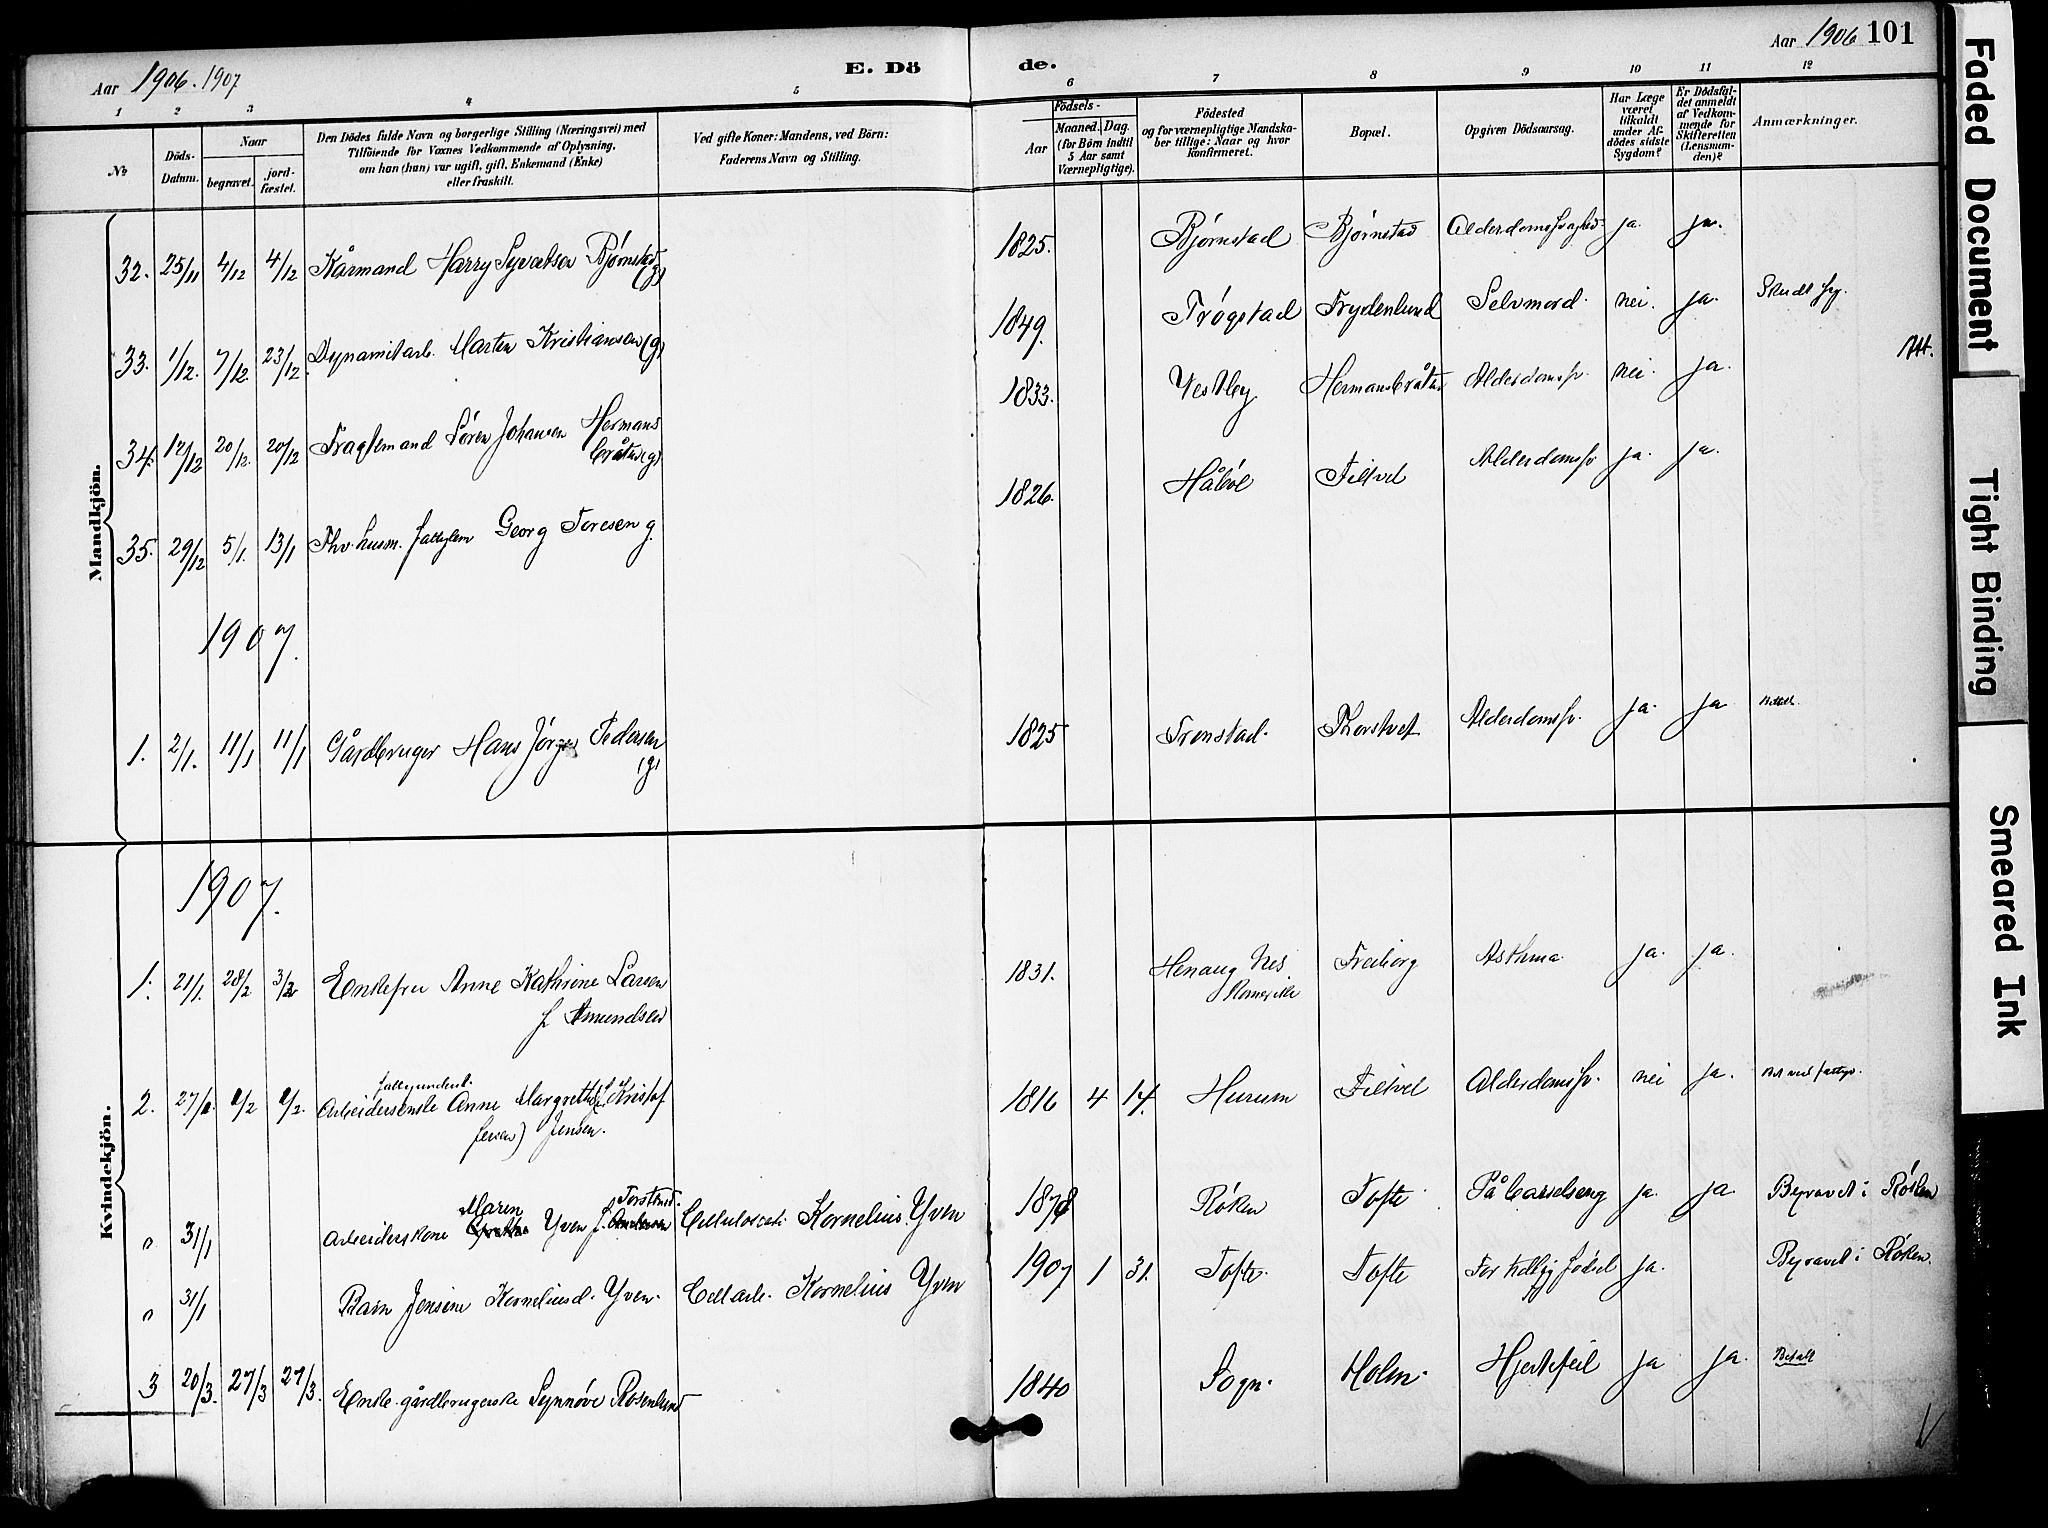 Aar 1906. 1907
E. Dö
de.
Aar 1906 101
1 2 3 4 5 6 7 8 9 10 11 12
No
Döds-
Datum.
Naar
begravet.
jord-
fæstet.
Den Dödes fulde Navn og borgerlige Stilling (Næringsvei) med
Tilföiende for Voxnes Vedkommende af Oplysning,
om han (hun) var ugift, gift, Enkemand (Enke)
eller fraskilt.
Ved gifte Koner: Mandens, ved Börn:
Faderens Navn og Stilling.
Födsels-
Aar
Maaned. Dag.
(for Börn indtil
5 Aar samt
Værnepligtige).
Födested
og for værnepligtige Mandska-
ber tillige: Naar og hvor
konfirmeret.
Bopæl.
Opgiven Dödsaarsag.
Har Læge
været
tilkaldt
under Af-
dödes sidste
Sygdom?
Er Dödsfal-
det anmeldt
af Vedkom-
mende for
Skifteretten
(Lensman-
den)?
Anmærkninger.
Mandkjön.
32. 25/11 4/12 4/12 Kårmand Harry Syvertsen Bjørnstad (g) 1825. Bjørnstad Bjørnstad Alderdomssvaghed ja. ja.
33. 1/12. 7/12. 23/12. Dynamitarb. Marten Kristiansen (g) 1849. Trøgstad Frydenlund Selvmord. nei. ja. Skudt sig.
34. 12/12 20/12. 20/12 Søren Johansen Hermans
bråten (g) 1833. Vestby Hermansbråten Alderdomssv. nei. ja.
35. 29/12 5/1. 13/1 Fhv. husm. fattiglem Georg Toresen g. 1826. Håbøl Filtvet Alderdomssv ja. ja.
1907.
1. 2/1. 11/1 11/1 Gårdbruger Hans Jørgen Pedersen
(g) 1825 Tronstad. Thorstvet Alderdomssv. ja. ja
Kvindekjön.
1907.
1. 21/1. 28/2 Enkefru Anne Kathrine Larsen
f. Amundsen 1831. Nes
Romerike Freiborg Asthma ja. ja.
2. 27/1. Arbeidersenke
fattigunderst. Anne Margrethe Kristof
fersen) Jensen. 1816 4 14. Hurum Filtvet Alderdomssv. nei ja.
" 31/1 Arbeiderskone Maren Yven f. Torstensd. Cellulosearb. Kornelius Yven 1878 Røken Tofte På barselseng ja. ja. Begravet i Røken
" 31/1 Barn Jensine Korneliusd. Yven. Cell arb. Kornelius Yven 1907 1 31. Tofte. Tofte For tidlig født ja. Begravet i Røken.
3 20/3. 27/3 27/3. Enke. gårdbrugerske Synnøve Rosenlund 1840 Sogn. Holm. Hjertefeil ja ja. Betalt
V
Faded Document
Tight Binding
Smeared Ink